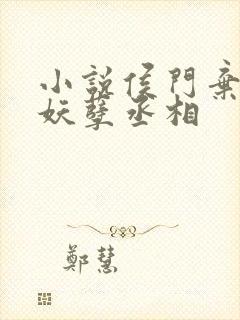 小說侯門棄
妖孽丞相
鄭慧